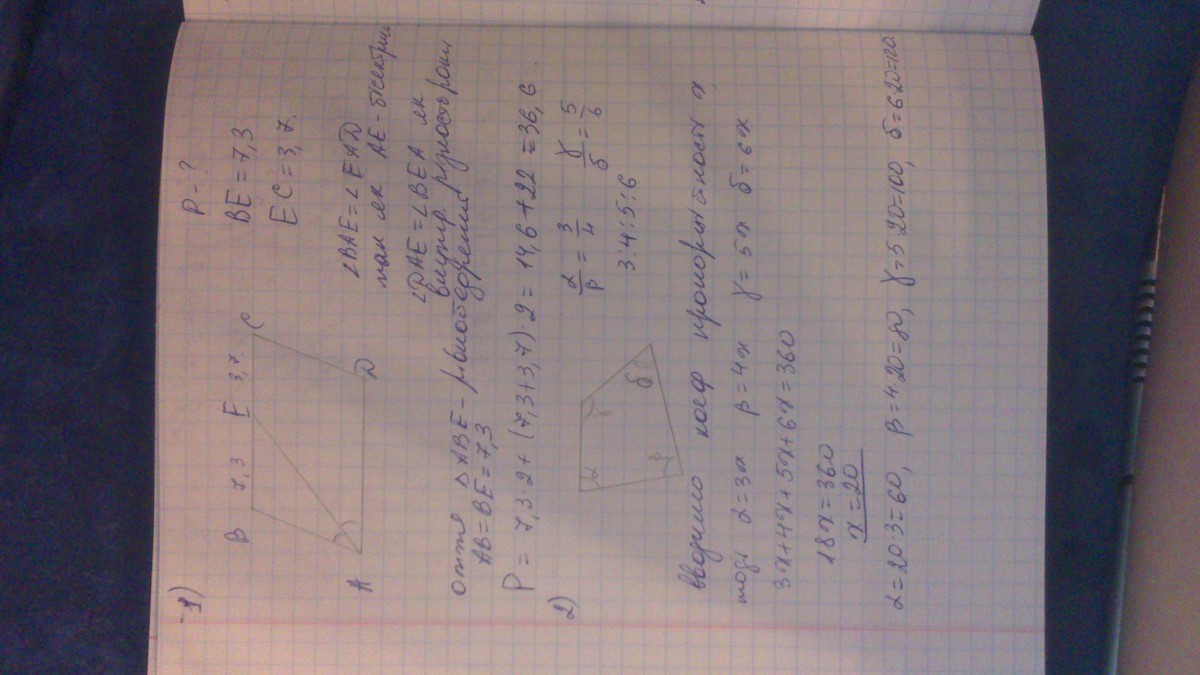 1)
P - ?
B 7,3 E 3,7 C
BE = 7,3
EC = 3,7.
A D
∠BAE = ∠EAD
так як AE - бісектриса
∠DAE = ∠BEA як
внутр різностороні
отже △ABE - рівнобедрений
AB = BE = 7,3
P = 7,3·2 + (7,3+3,7)·2 = 14,6+22 = 36,6.
2)
α/β = 3/4 γ/δ = 5/6
3:4:5:6
α γ β δ
вводимо коеф пропорційності x
тоді α=3x β=4x γ=5x δ=6x
3x+4x+5x+6x=360
18x=360
x=20
α=20·3=60, β=4·20=80, γ=5·20=100, δ=6·20=120.